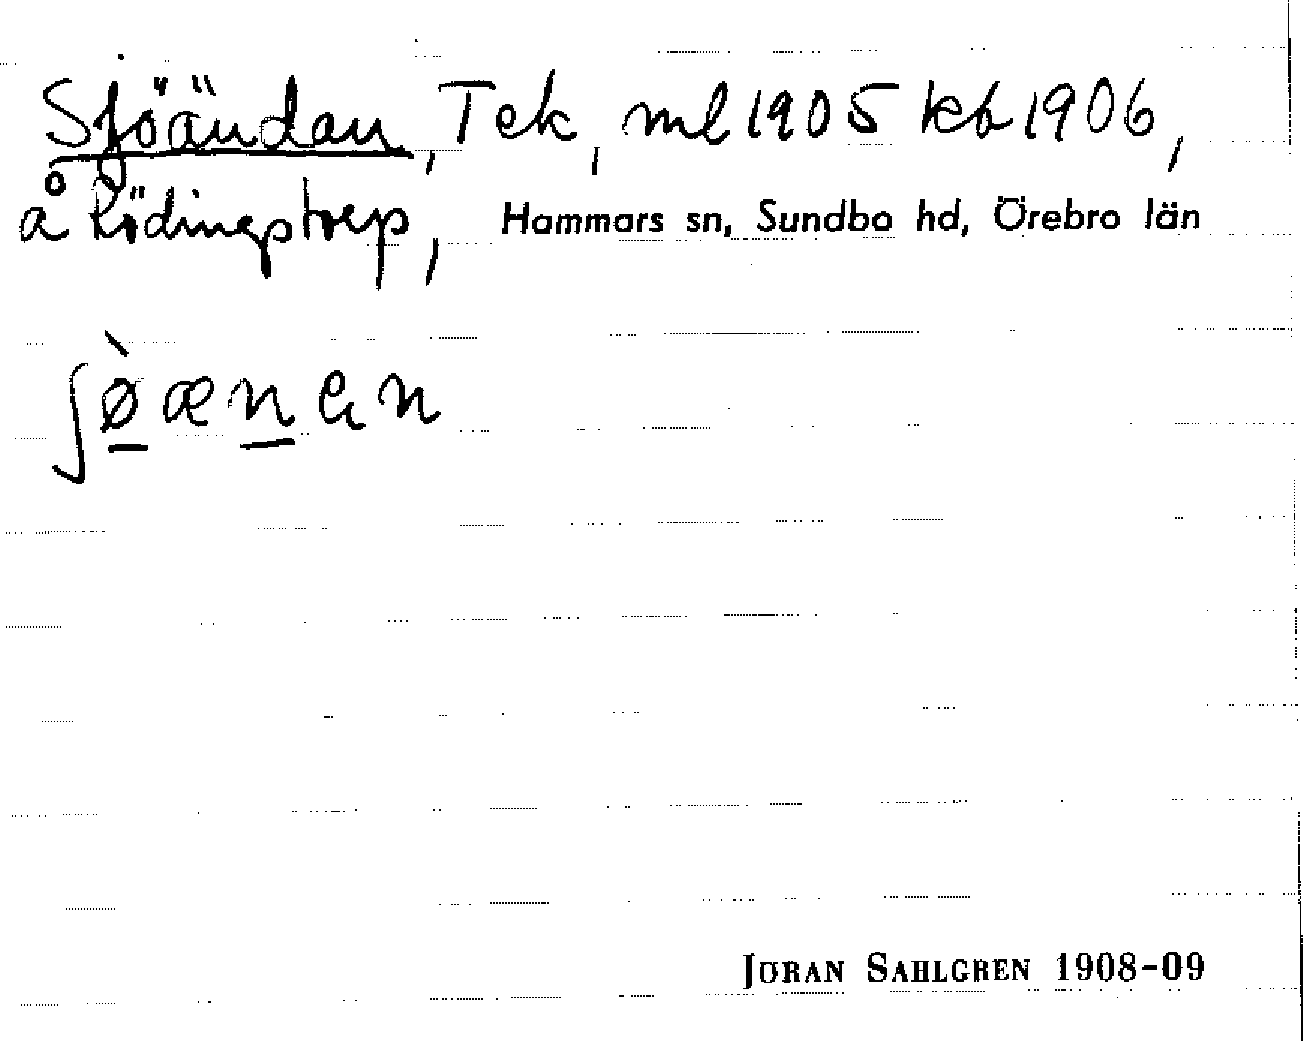 Sjöändan, Tek, ml 1905 kb 1906,
å Rödingstorp, Hammars sn, Sundbo hd, Örebro län
ʃø̀ænən
JÖRAN SAHLGREN 1908-09